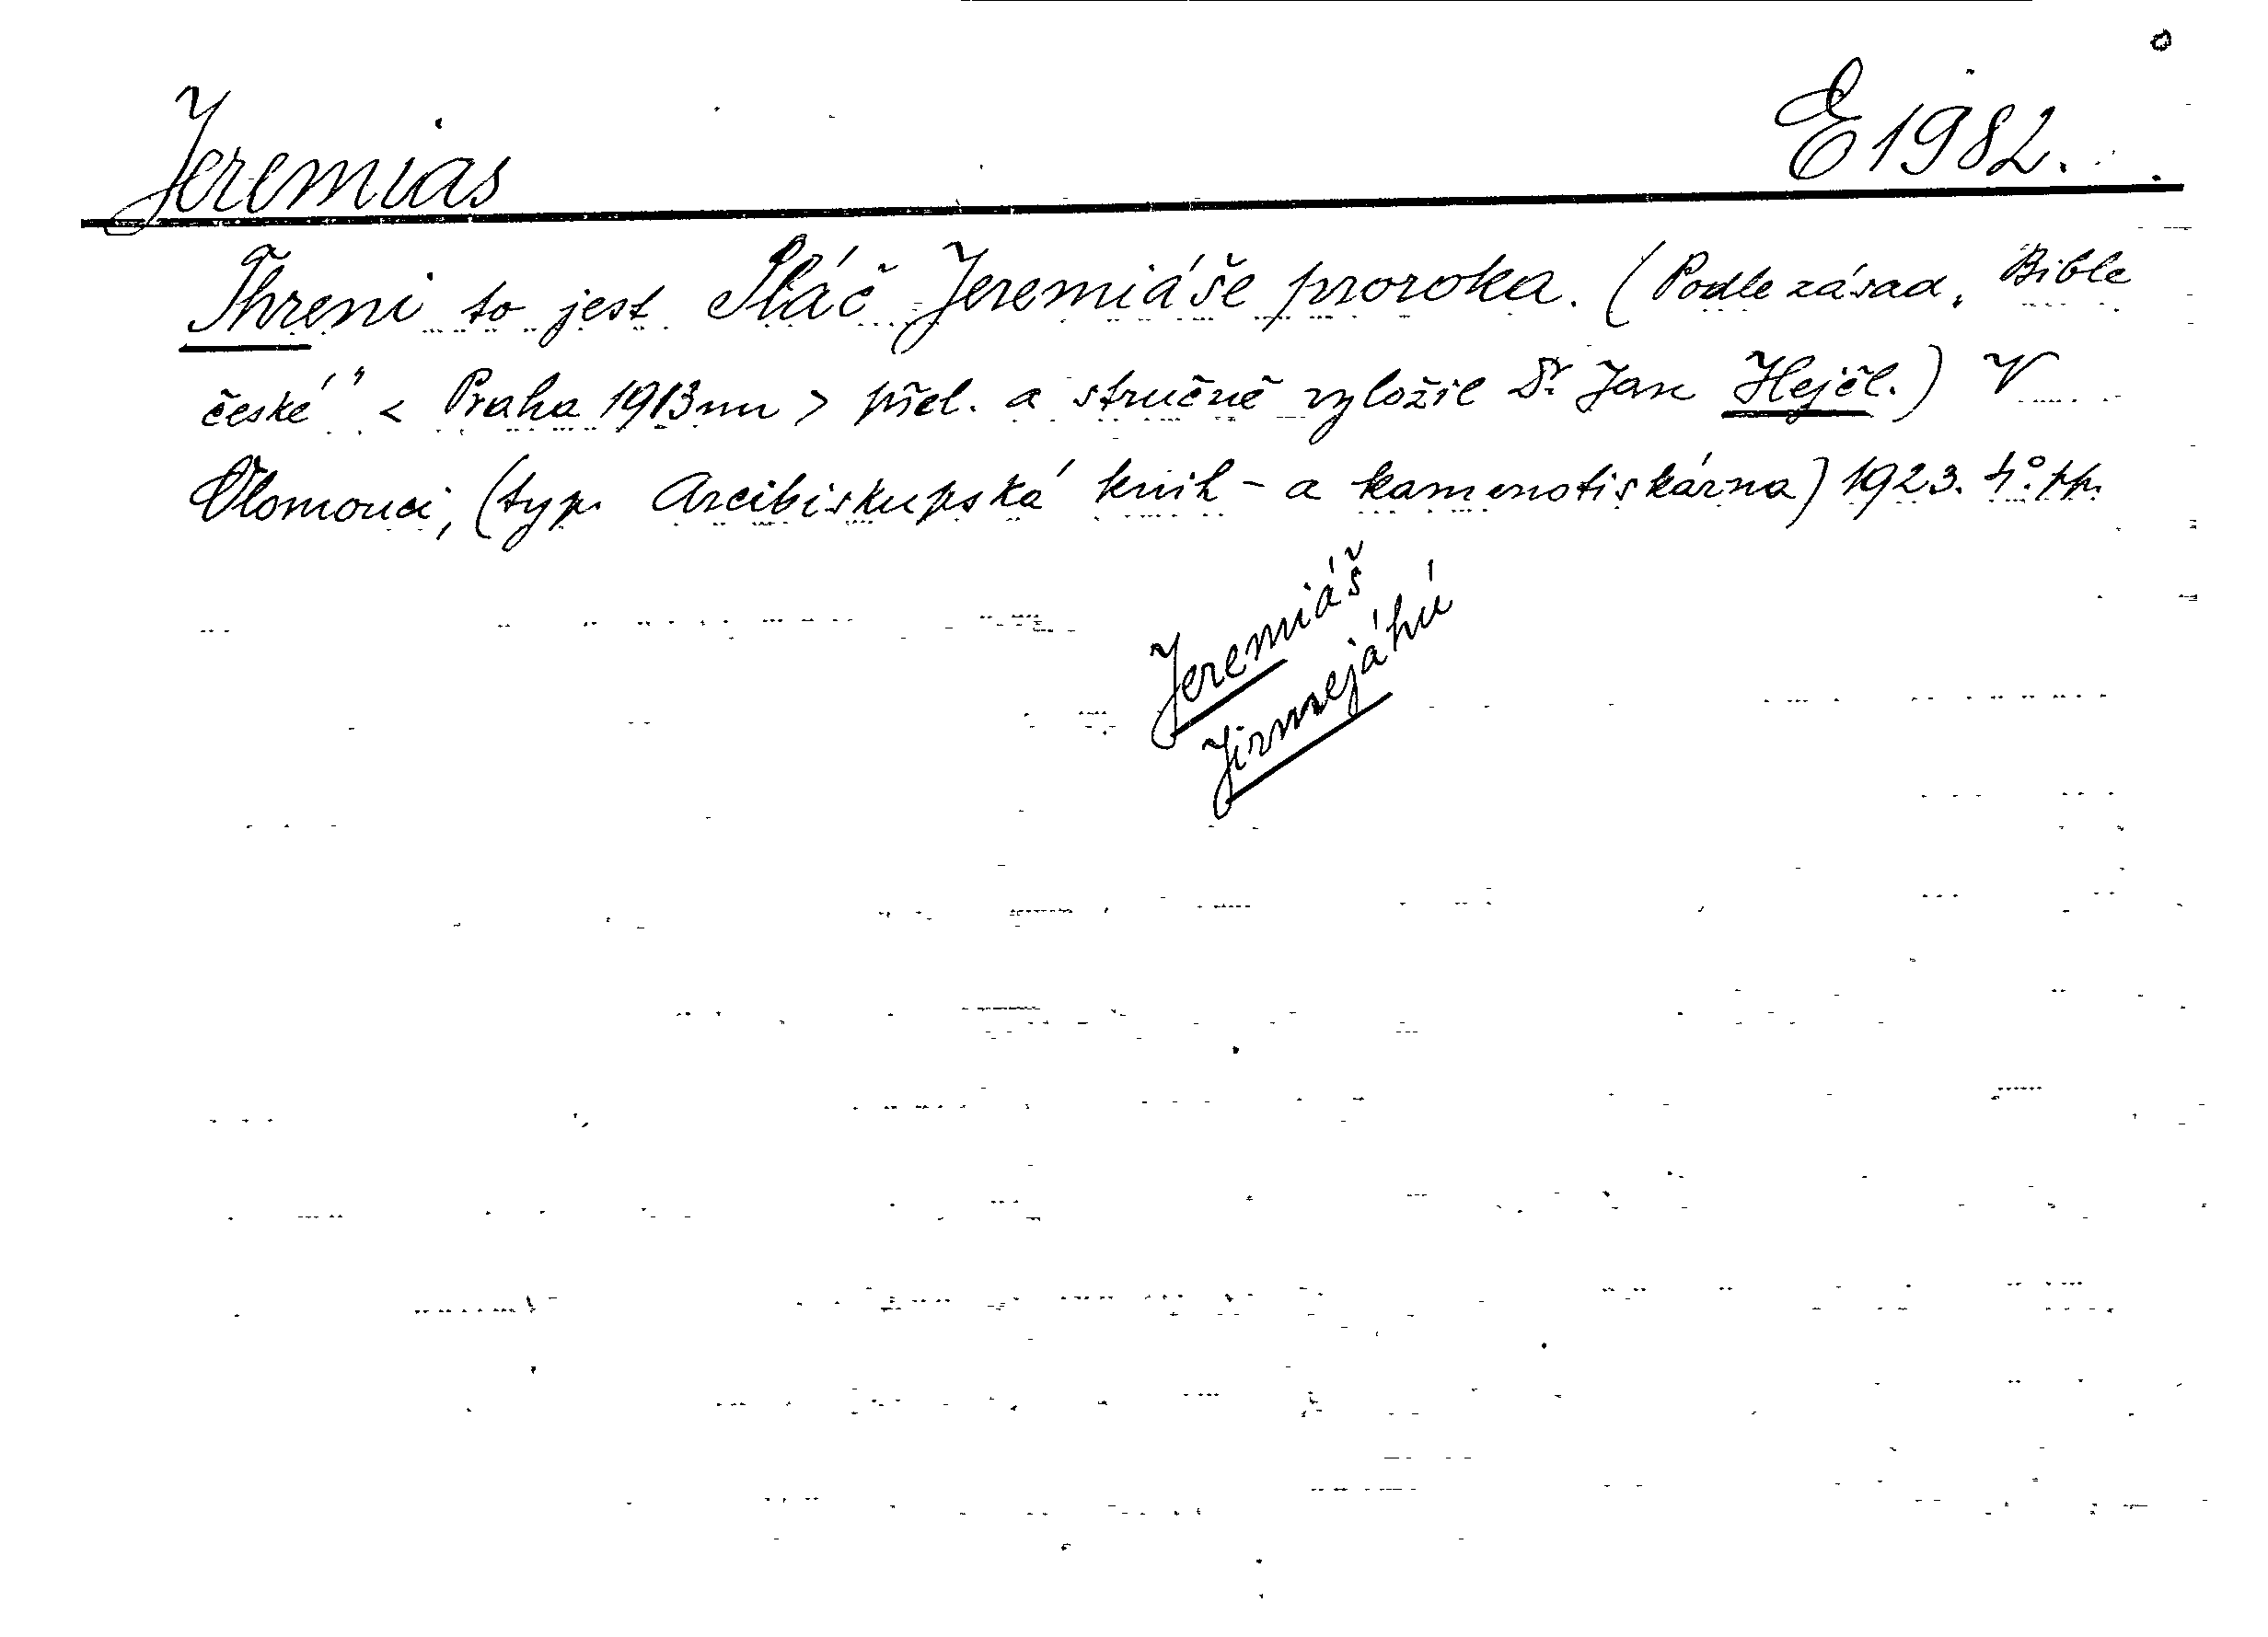 Jeremias
E 1982.
Threni to jest Pláč Jeremiáše proroka. (Podle zásad „Bible
české“ < Praha 1913nn > přel. a stručně vyložil Dr. Jan Hejčl.) V
Olomouci, (typ. Arcibiskupská knih- a kamenotiskárna) 1923. 4°. pp.
Jeremiáš
Jirmejáhú